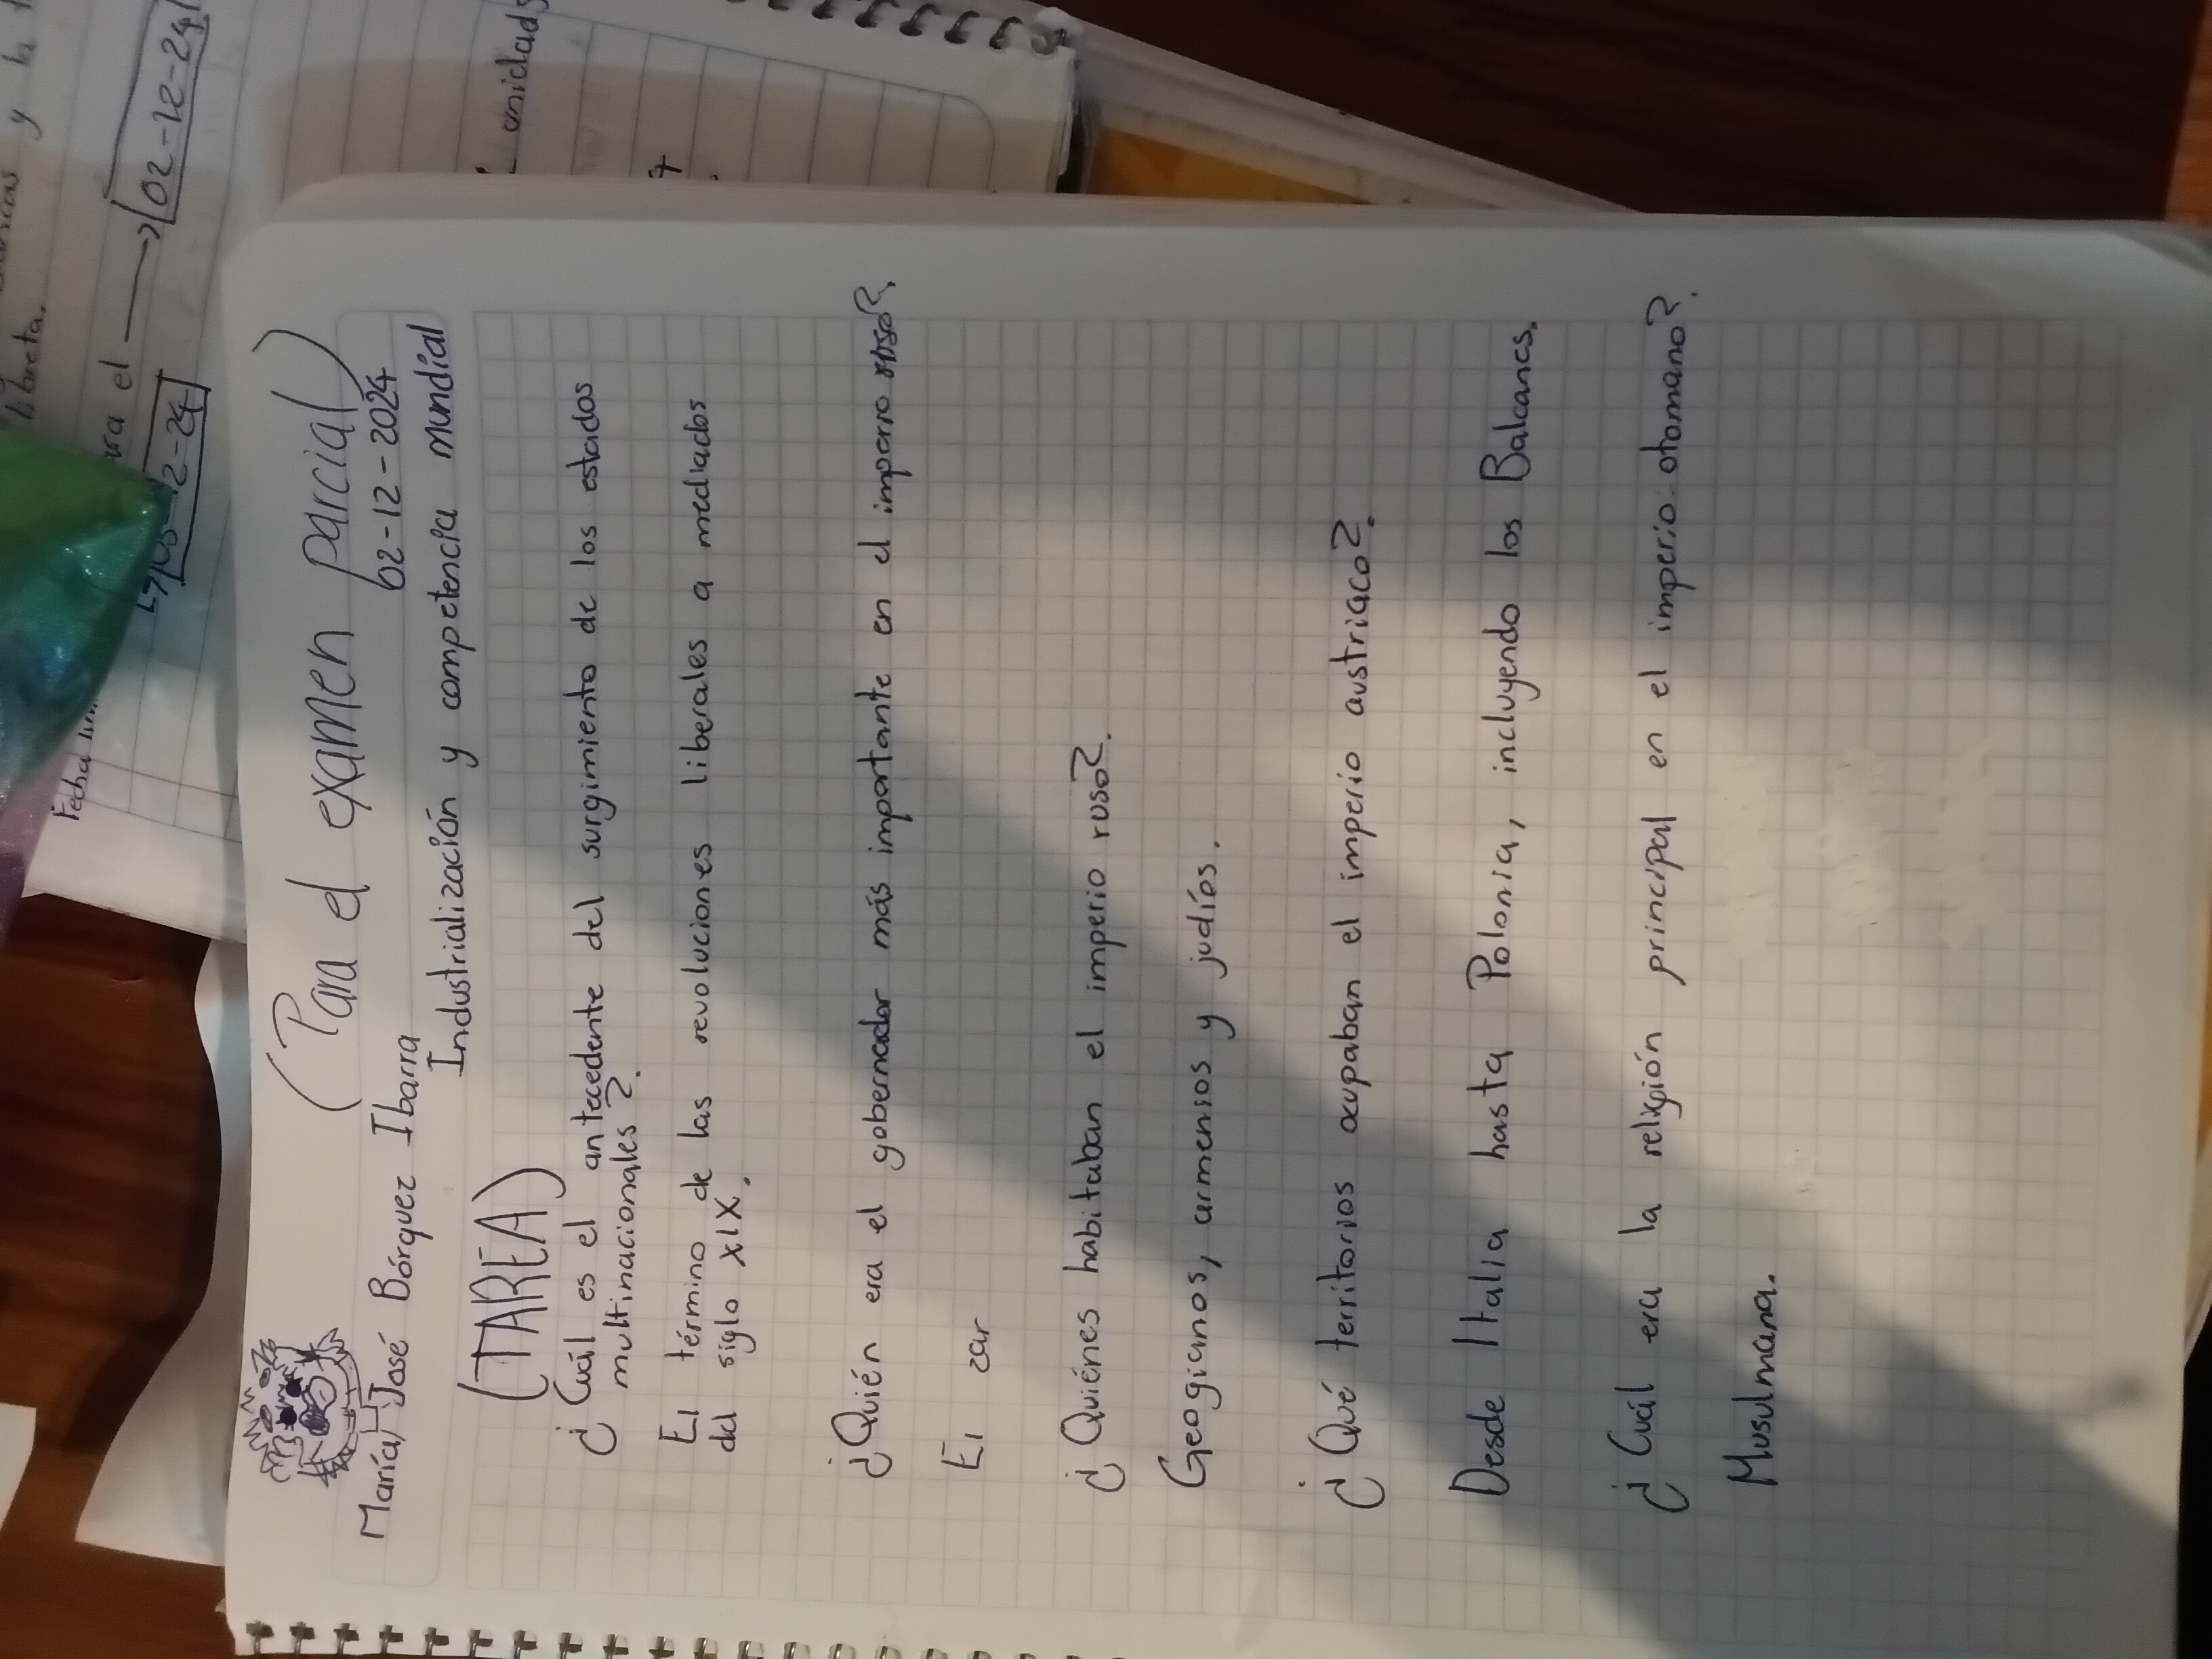 (Para el examen parcial)
María José Bórquez Ibarra 02-12-2024
Industrialización y competencia mundial
(TAREA)
¿Cuál es el antecedente del surgimiento de los estados
multinacionales?.
El término de las revoluciones liberales a mediados
del siglo XIX.
¿Quién era el gobernador más importante en el imperro ruso?.
El zar
¿Quiénes habitaban el imperio ruso?.
Geogianos, armenios y judíos.
¿Qué territorios ocupaban el imperio austriaco?.
Desde Italia hasta Polonia, incluyendo los Balcanes.
¿Cuál era la religión principal en el imperio otomano?.
Musulmana.
y la
libreta.
ara el → 02-12-24
2-24
Fecha
unidades